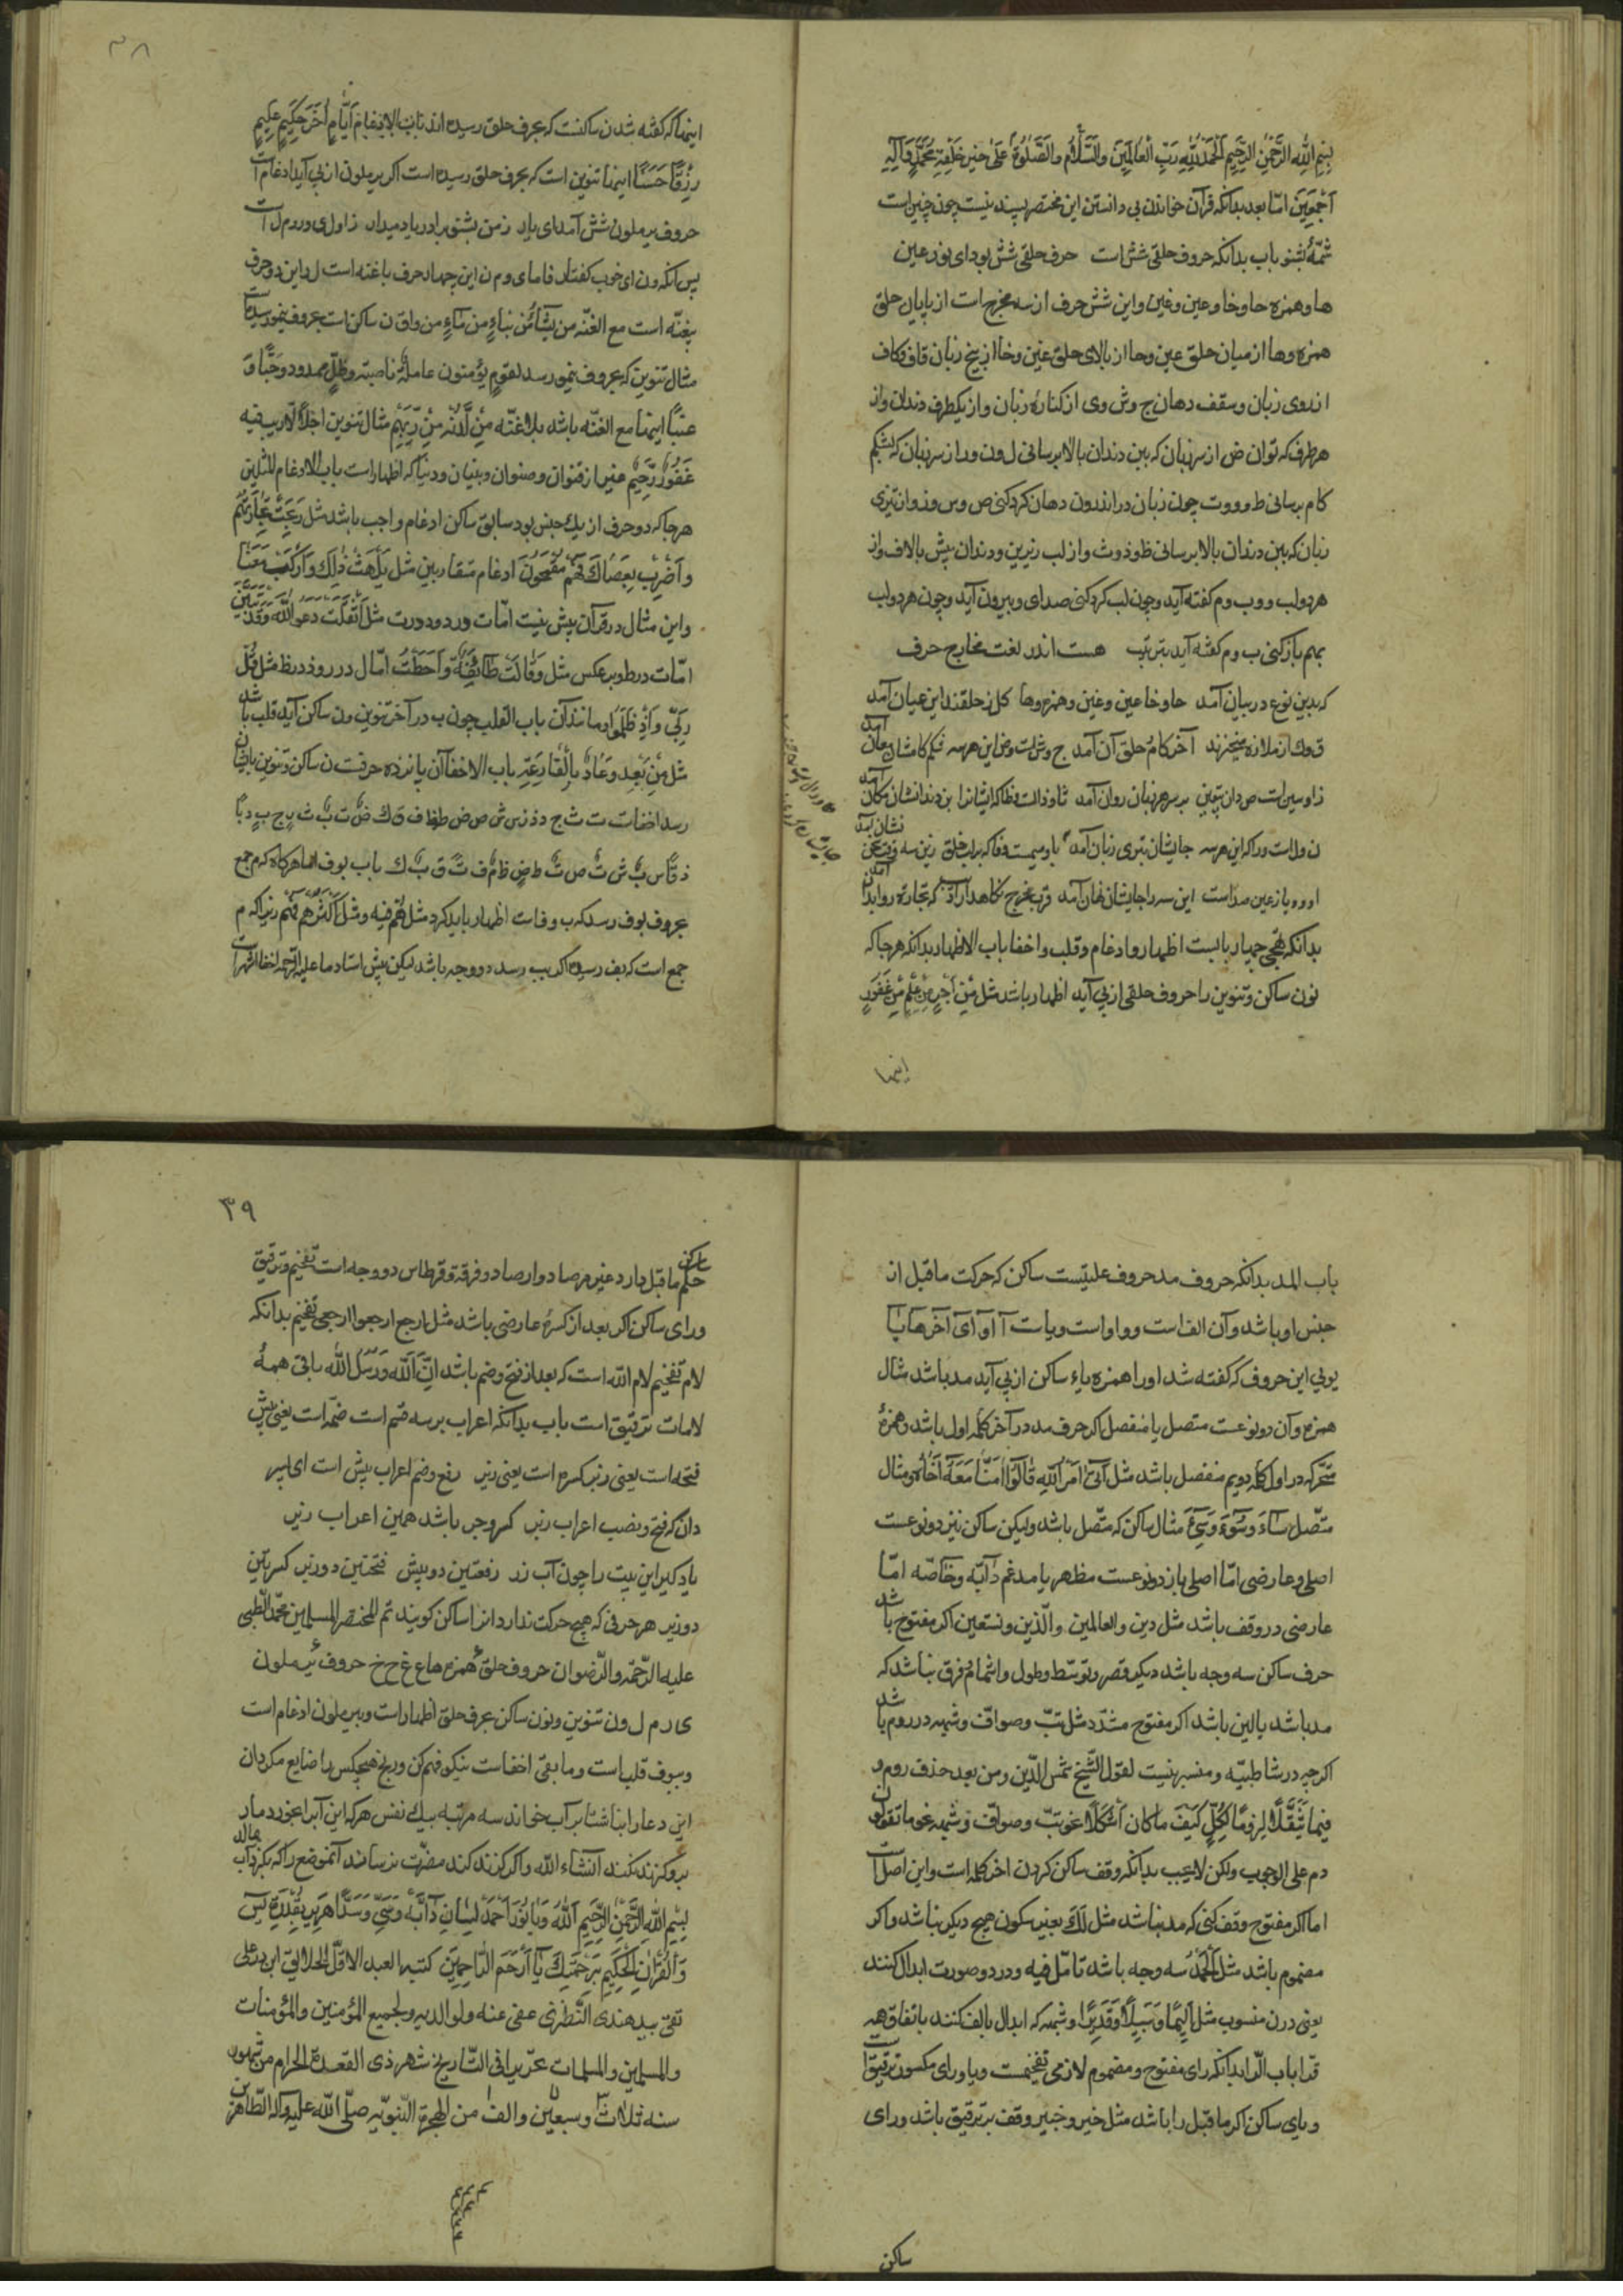 بِسْمِ اللهِ الرَّحْمٰنِ الرَّحِيْمِ اَلْحَمْدُ لِلّٰهِ رَبِّ الْعَالَمِينَ والسَّلَام والصَّلٰوةُ عَلٰى خَيْرِ خَلْقِهِ مُحَمَّدٍ وَآلِهِ
اَجْمَعِينَ امّا بعد بدانکه قرآن خواندن بی دانستن این مختصر پسند نیست چون چنین است
شمّهٔ بشنو باب بدانکه حروف حلقی شش است حرف حلقی شش بود ای نور عین
ها و همزه حا و خا و عین و غین و این شش حرف از سه مخرج است از پایان حلق
همزه و ها از میان حلق عین و حا از بالای حلق غین و خا از بیخ زبان قاف و کاف
از روی زبان و سقف دهان ج و ش و ی از کنارهٔ زبان و از یکطرف دندان و از
هر طرف که توان ض از سر زبان که ببن دندان بالا برسانی ل و ن و ر از سر زبان که بشکم
کام برسانی ط و د و ت چون زبان در اندرون دهان کرد کنی ص و س و ز و از تیزی
زبان که ببن دندان بالا برسانی ظ و ذ و ث و از لب زیرین و دندان پیش بالا ف و از
هر دو لب و و ب و م گفته آید و چون لب گرد کنی صدای و بیرون آید و چون هر دو لب
بهم باز کنی ب و م گفته آید بترتیب هست اندر لغت مخارج حرف
که بدین نوع در بیان آمد حا و خا عین و غین و همزه و ها کل ز حلقند این عیان آمد
ق و ک از ملازه میخیزند آخر کام حلق آن آمد ج و ش است و ض این هر سه شکم کامشان مکان آمد
زا و سین است صدان پیچین بر سر هر زبان روان آمد ثا و ذال است و ظا که ایشانرا بن دندانشان مکان آمد
ن و ل است و را که این هر سه جایشان تیزی زبان آمد با و میمست و فا که بر لب خلق زین سه نشان آمد
او و و یا ز عین صداست این سه را جایشان نهان آمد
بدانکه تهجی چهار بابست اظهار و ادغام و قلب و اخفا باب الاظهار بدانکه هرجا که
نون ساکن و تنوین را حروف حلقی از پی آید اظهار باشد مثل مِنْ اَجْرٍ مِنْ عِلْمٍ مِنْ غَفُورٍ
اینها
٣٨
اینها که گفته شد ن ساکنست که بحرف حلق رسیده اند باب الادغام اَيَّامٍ اُخَرَ حَكِيْمٍ عَلِيمٍ
رِزْقًا حَسَنًا اینها تنوین است که بحرف حلق رسیده است اگر یرملون از پی آید ادغام است
حروف یرملون شش آمد ای یار ز من بشنو برادر یاد میدار ز اول ی و ر و م ل است
پس آنکه و ن ای خوب گفتار فامای و م ن این چهار حرف باغنه است ل ر این دو حرف
بیغنّه است مع الغنّه من یشآءُ من نبإٍ من مآءٍ من واق ن ساکن است بحروف ینمو رسیده
مثال تنوین که بحروف ینمو رسد لقومٍ یؤمنون عاملةٌ ناصبة وظلٍّ ممدود وحَبًّا وَ
عنبًا اینها مع الغنّه باشد بلاغنّه مِنْ لَّدُنْهُ مِنْ رَّبِّهِمْ مثال تنوین اجلاً لا ریب فیه
غَفُورٌ رَّحِيْمٌ غیر از قنوان و صنوان و بنیان و دنیا که اظهار است باب الادغام المثلین
هرجا که دو حرف از یک جنس بود سابق ساکن ادغام واجب باشد مثل رَبِحَتْ تِجَارَتُهُمْ
وَاضْرِبْ بِعَصَاكَ فَهُمْ مُقْمَحُونَ ادغام متقاربین مثل يَلْهَثْ ذٰلِكَ وَارْكَبْ مَعَنَا
و این مثال در قرآن بیش نیست امّا ت و ر د و د و ر ت مثل اَثْقَلَتْ دَعَوَا اللّٰهَ وَقَدْ تَبَيَّنَ
امّا ت در ط و برعکس مثل وَقَالَتْ طَآئِفَةٌ وَاَحَطْتُ امّا ل در ر و ذ در ظ مثل قُلْ
رَبِّ وَاِذْ ظَلَمُوا و مانند آن باب القلب چون ب در آخر تنوین و ن ساکن آید قلب باشد
مثل مِنْ بَعْدِ وَعَادٌ بِالْقَارِعَةِ باب الاخفا آن پانزده حرفست ن ساکن و تنوین با ایشان
رسد اخفاست ت ث ج د ذ ز س ش ص ض ط ظ ف ق ك
باب بوف اما هرگاه که م جمع
بحروف بوف رسد که ب و ف است اظهار باید کرد مثل لَهُمْ فِيهِ و مثل اَكْثَرُهُمْ فَهُمْ زیرا که م
جمع است که بف رسیده اگر ببب رسد دو وجه باشد لیکن پیش استاد ما علیه الرّحمه اخفا اشهر است
باب المد بدانکه حروف مد حروف علتیست ساکن که حرکت ما قبل از
جنس او باشد و آن الف است و واو است و یا ست آ او ای آخرها یا
یونی این حروف که گفته شد او را همزه یا ساکن از پی آید مد باشد مثال
همزه و آن دو نوعست متصل یا منفصل اگر حرف مد در آخر کلمه اول باشد و همزهٔ
متحرکه در اول کلمه دویم منفصل باشد مثل اَتٰیٓ اَمْرُ اللّٰهِ قَالُوٓا اٰمَنَّا مَعَهٓ اَخَاهُ و مثال
متّصل سَآءَ وَسُوٓءَ وَسِیٓءَ مثال ساکن که متّصل باشد و لیکن ساکن نیز دو نوعست
اصلی و عارضی امّا اصلی باز دو نوعست مظهر یا مدغم دَآبّه و خآصّه امّا
عارضی در وقف باشد مثل دین و العالمین و الّذین و نستعین اگر مفتوح باشد
حرف ساکن سه وجه باشد دیگر قصر و توسّط و طول و اشمام فرق نباشد که
مد باشد یا لین باشد اگر مفتوح مشدّد مثل تبّ و صوافّ و شبهه در روم باشد
اگرچه در شاطبیّه و منسبه نیست لقول الشّیخ شمس الدّین ومن بعد حذف روم و
فیما ثَقُلَ لِزومًا لِكُلٍّ كَيْفَ ما كان اَشْكَلا نحو تبّ و صوافّ و شبهه نحو ما تقولون
دم علی الوجوب ولكن لا یجب بدانکه وقف ساکن کردن آخر کلمه است و این اصل است
اما اگر مفتوح وقف کنی که مد نباشد مثل لَكَ بغیر سکون هیچ دیگر نباشد و اگر
مضموم باشد مثل اَلْحَمْدُ سه وجه باشد تامّل فیه و در دو صورت ابدال کنند
یعنی در ن منسوب مثل اَلِيمًا وَسَبِيلًا وَقَدِيرًا و شبهه که ابدال بالف کنند باتفاق همه
قرّا باب الرّا بدانکه رای مفتوح و مضموم لازمی تفخیمست و یا و رای مکسور ترقیقست
و یای ساکن اگر ماقبل را باشد مثل خیر و خبیر وقف بترقیق باشد و رای
ساکن
٣٩
ساکن حکم ما قبل دارد غیر مرصاد و ارصاد و فرقة و قرطاس دو وجه است تفخیم و ترقیق
و رای ساکن اگر بعد از کسرهٔ عارضی باشد مثل ارجع ارجعوا ارجعی تفخیم بدانکه
لام تفخیم لام اللّه است که بعد از فتح و ضم باشد اِنَّ اللّٰهَ وَرُسُلُ اللّٰه باقی همهٔ
لامات ترقیق است باب بدانکه اعراب بر سه قسم است ضمّه است یعنی پیش
فتحه است یعنی زبر کسره است یعنی زیر رفع و ضم اعراب پیش است ای پسر
دان که فتح و نصب اعراب زبر کسر و جر باشد همین اعراب زیر
یاد گیر این بیت را چون آب زر رفعتین دو پیش فتحتین دو زبر کسرتین
دو زیر هر حرفی که هیچ حرکت ندارد انرا ساکن گویند تم المختصر المسلمین محمّد الطّبی
علیه الرّحمة والرّضوان حروف حلق همزه ها ع غ ح خ حروف یرملون
ی ر م ل و ن تنوین و نون ساکن بحرف حلق اظهار است و بیرملون ادغام است
و ببوف قلب است و ما بقی اخفاست نیکو فهم کن و رنج هیچکس را ضایع مگردان
این دعا را ناشتا بر آب خواند سه مرتبه بیک نفس هر که این آبرا بخورد مار
برو گزند نکند انشاء اللّه و اگر گزند کند مضرّت نرساند آنموضع را که بگزد آب بمالد
بِسْمِ اللّٰهِ الرَّحْمٰنِ الرَّحِيْمِ
وَالْقُرْاٰنِ الْحَكِيمِ بِرَحْمَتِكَ يَآ اَرْحَمَ الرَّاحِمِينَ كتبه العبد الاقلّ الخلایق ابن
تقی بیدهندی النّطنزی عفی عنه ولوالدیه ولجمیع المؤمنین والمؤمنات
والمسلمین والمسلمات تحریرا فی التّاریخ شهر ذی القعدة الحرام من شهور
سنه ثلاث و سبعین والف من الهجرة النّبویّه صلّی اللّه علیه وآله الطّاهرین